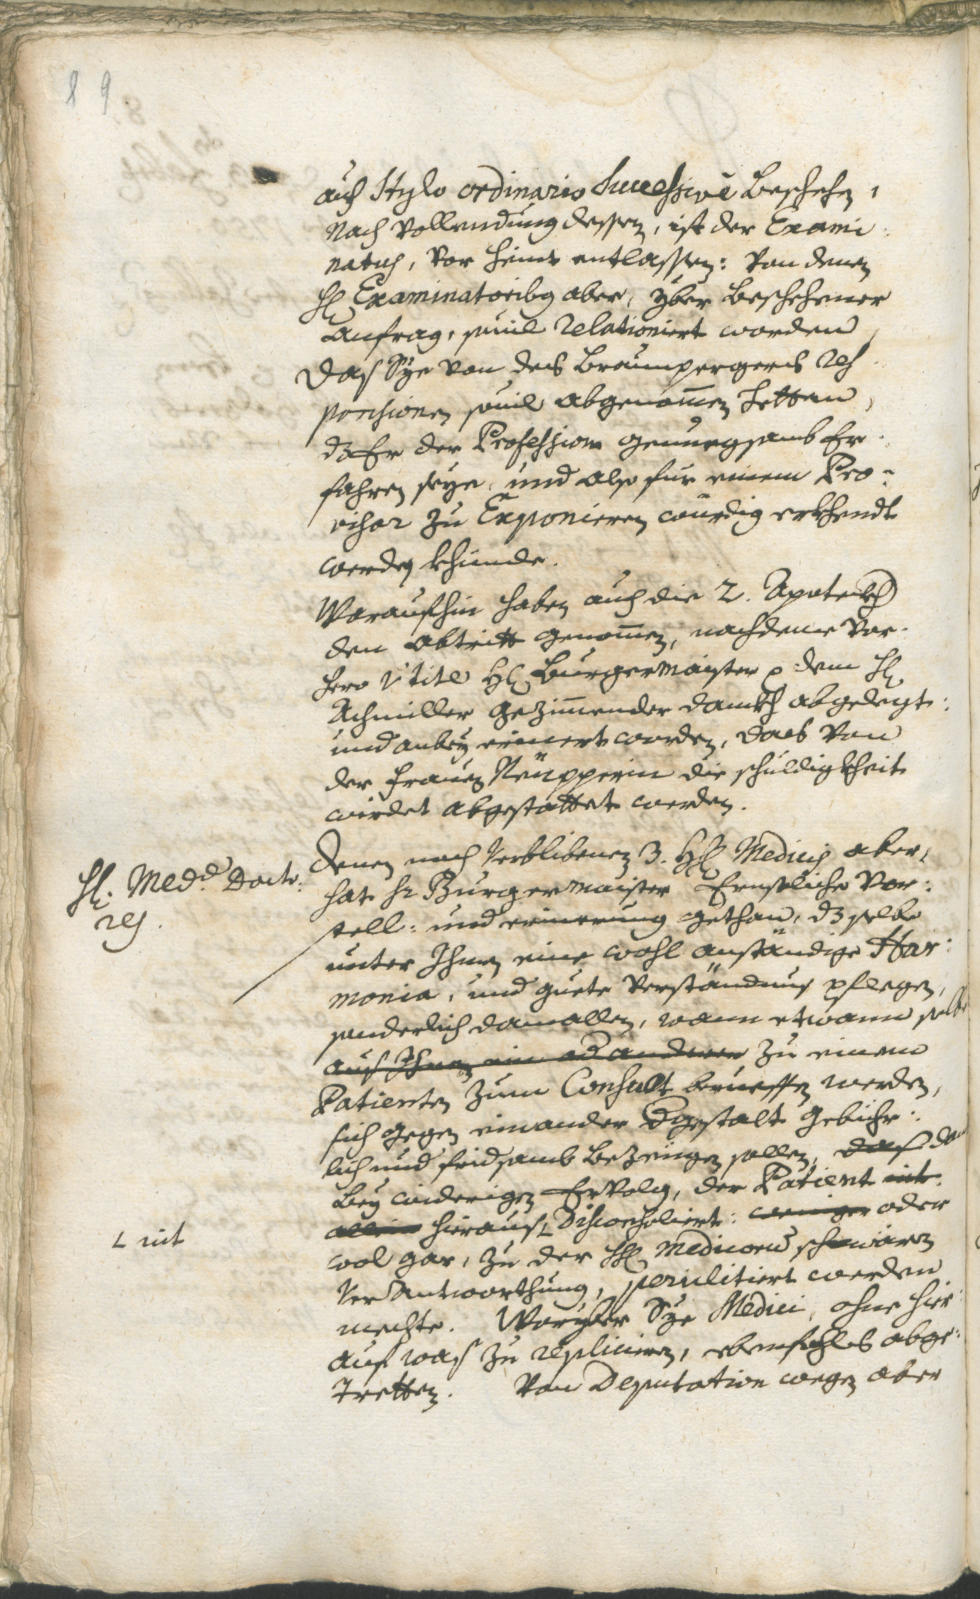 8 9
auch Stylo ordinario Successivè beschehen,
nach vollendung dessen, ist der Exami:
natus, vor heint entlassen: von denen
H: Examinatoribus aber, yber beschehener
anfrag, souil relationiert worden,
das Sye von des Braumpergers res
ponsionen souil abgenommen hetten,
dz Er der Profession genuegsamb Er
fahren seye, und also fur einen Pro:
visor zu Exponieren würdig erkhendt
werden khünde.
Woraufhin haben auch die 2. Apoteckh
den abtritt genommen, nachdeme vor
hero titl H: Burgermaister dem H:
Achmiller gezimmender danckh abgelegt:
und anbey erinert worden, das von
der frauen die schuldigkheit
wirdet abgestattet werden.
H: Med: Doctor:
res.
Denen noch verblibenen 3. H: Medicis aber,
hat H: Burgermaister Ernstliche vor:
stell: und erinerung gethan, dz selbe
unter Ihnen eine wohl anständige Har:
monia, und guete verständnus pflegen,
sonderlich damallen, wann etwann selbe
auß Ihnen ein od anderer zu einem
Patienten zum Consult berueffen werden,
sich gegen einander dergestalt gebihr:
lich und fridsamb bezeigen sollen, das da
bey widerigen Ervolg, der Patient nit
allein hierauß disconsoliert: weniger oder
L nit
wol gar, zu der H: Medicorum schwären
verantworthung, periclitiert werden
mechte. Woryber Sye Medici, ohne hier:
auf was zu replicieren, ebenfahls abge:
tretten. Von Deputation wegen aber